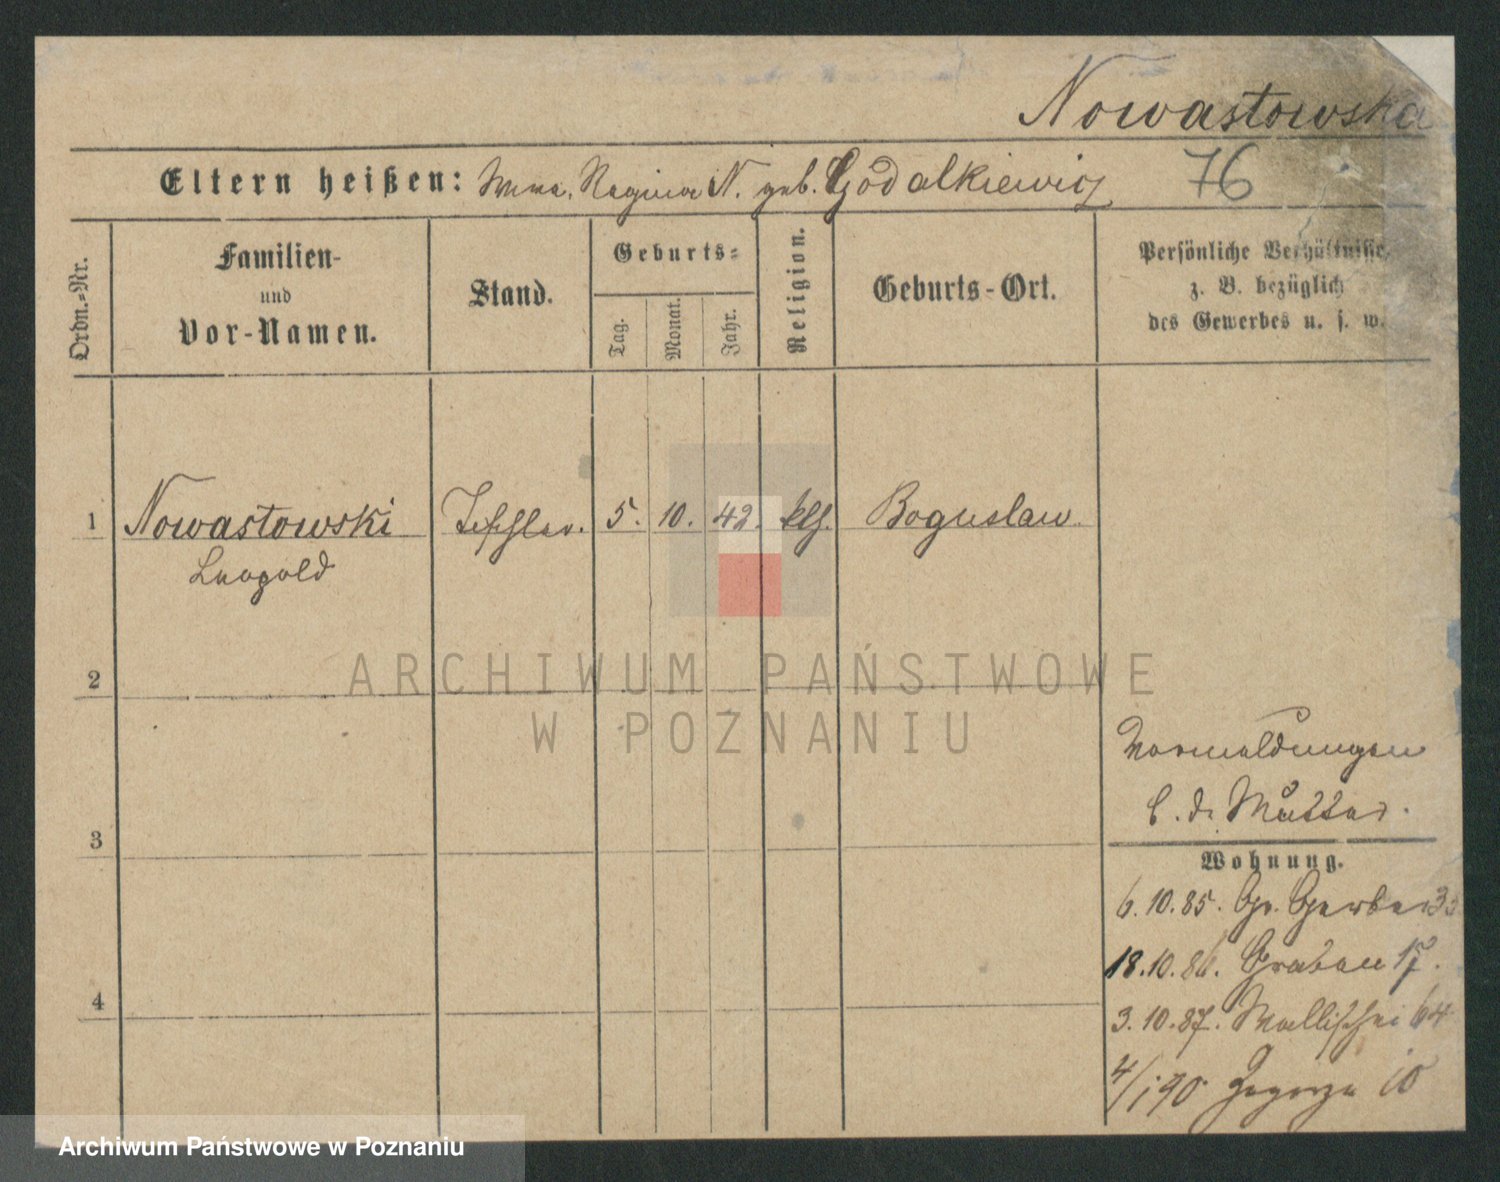 Nowastowska
Eltern heißen: Wwe. Regina N. geb. Godalkiewicz 76
Ordn.=Nr.
Familien-
und
Vor-Namen.
Stand.
Geburts=
Tag.
Monat.
Jahr.
Religion.
Geburts-Ort.
Persönliche Verhältnisse,
z. B. bezüglich
des Gewerbes u. s. w.
1 Nowastowski Tischler. 5. 10. 42. klh. Boguslaw.
Leopold
2
ARCHIWUM PAŃSTWOWE
W POZNANIU
Vermeldungen
b. d. Mutter.
3
Wohnung.
6.10.85. Gr. Gerber 33
18.10.86. Graben 17.
4
3.10.87. Wallischei 64
4/1 90 Zagorze 10
Archiwum Państwowe w Poznaniu